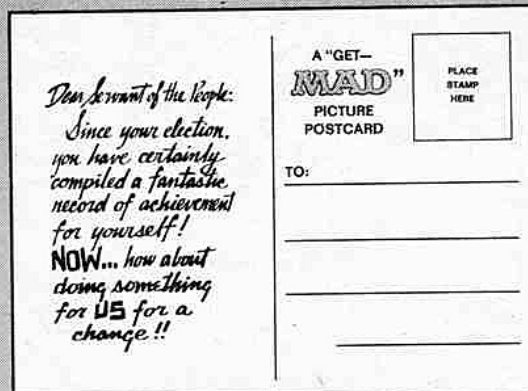 Dear Servant of the People:
Since your election,
you have certainly
compiled a fantastic
record of achievement
for yourself!
NOW... how about
doing something
for US for a
change!!
A "GET—
MAD"
PICTURE
POSTCARD
PLACE
STAMP
HERE
TO: